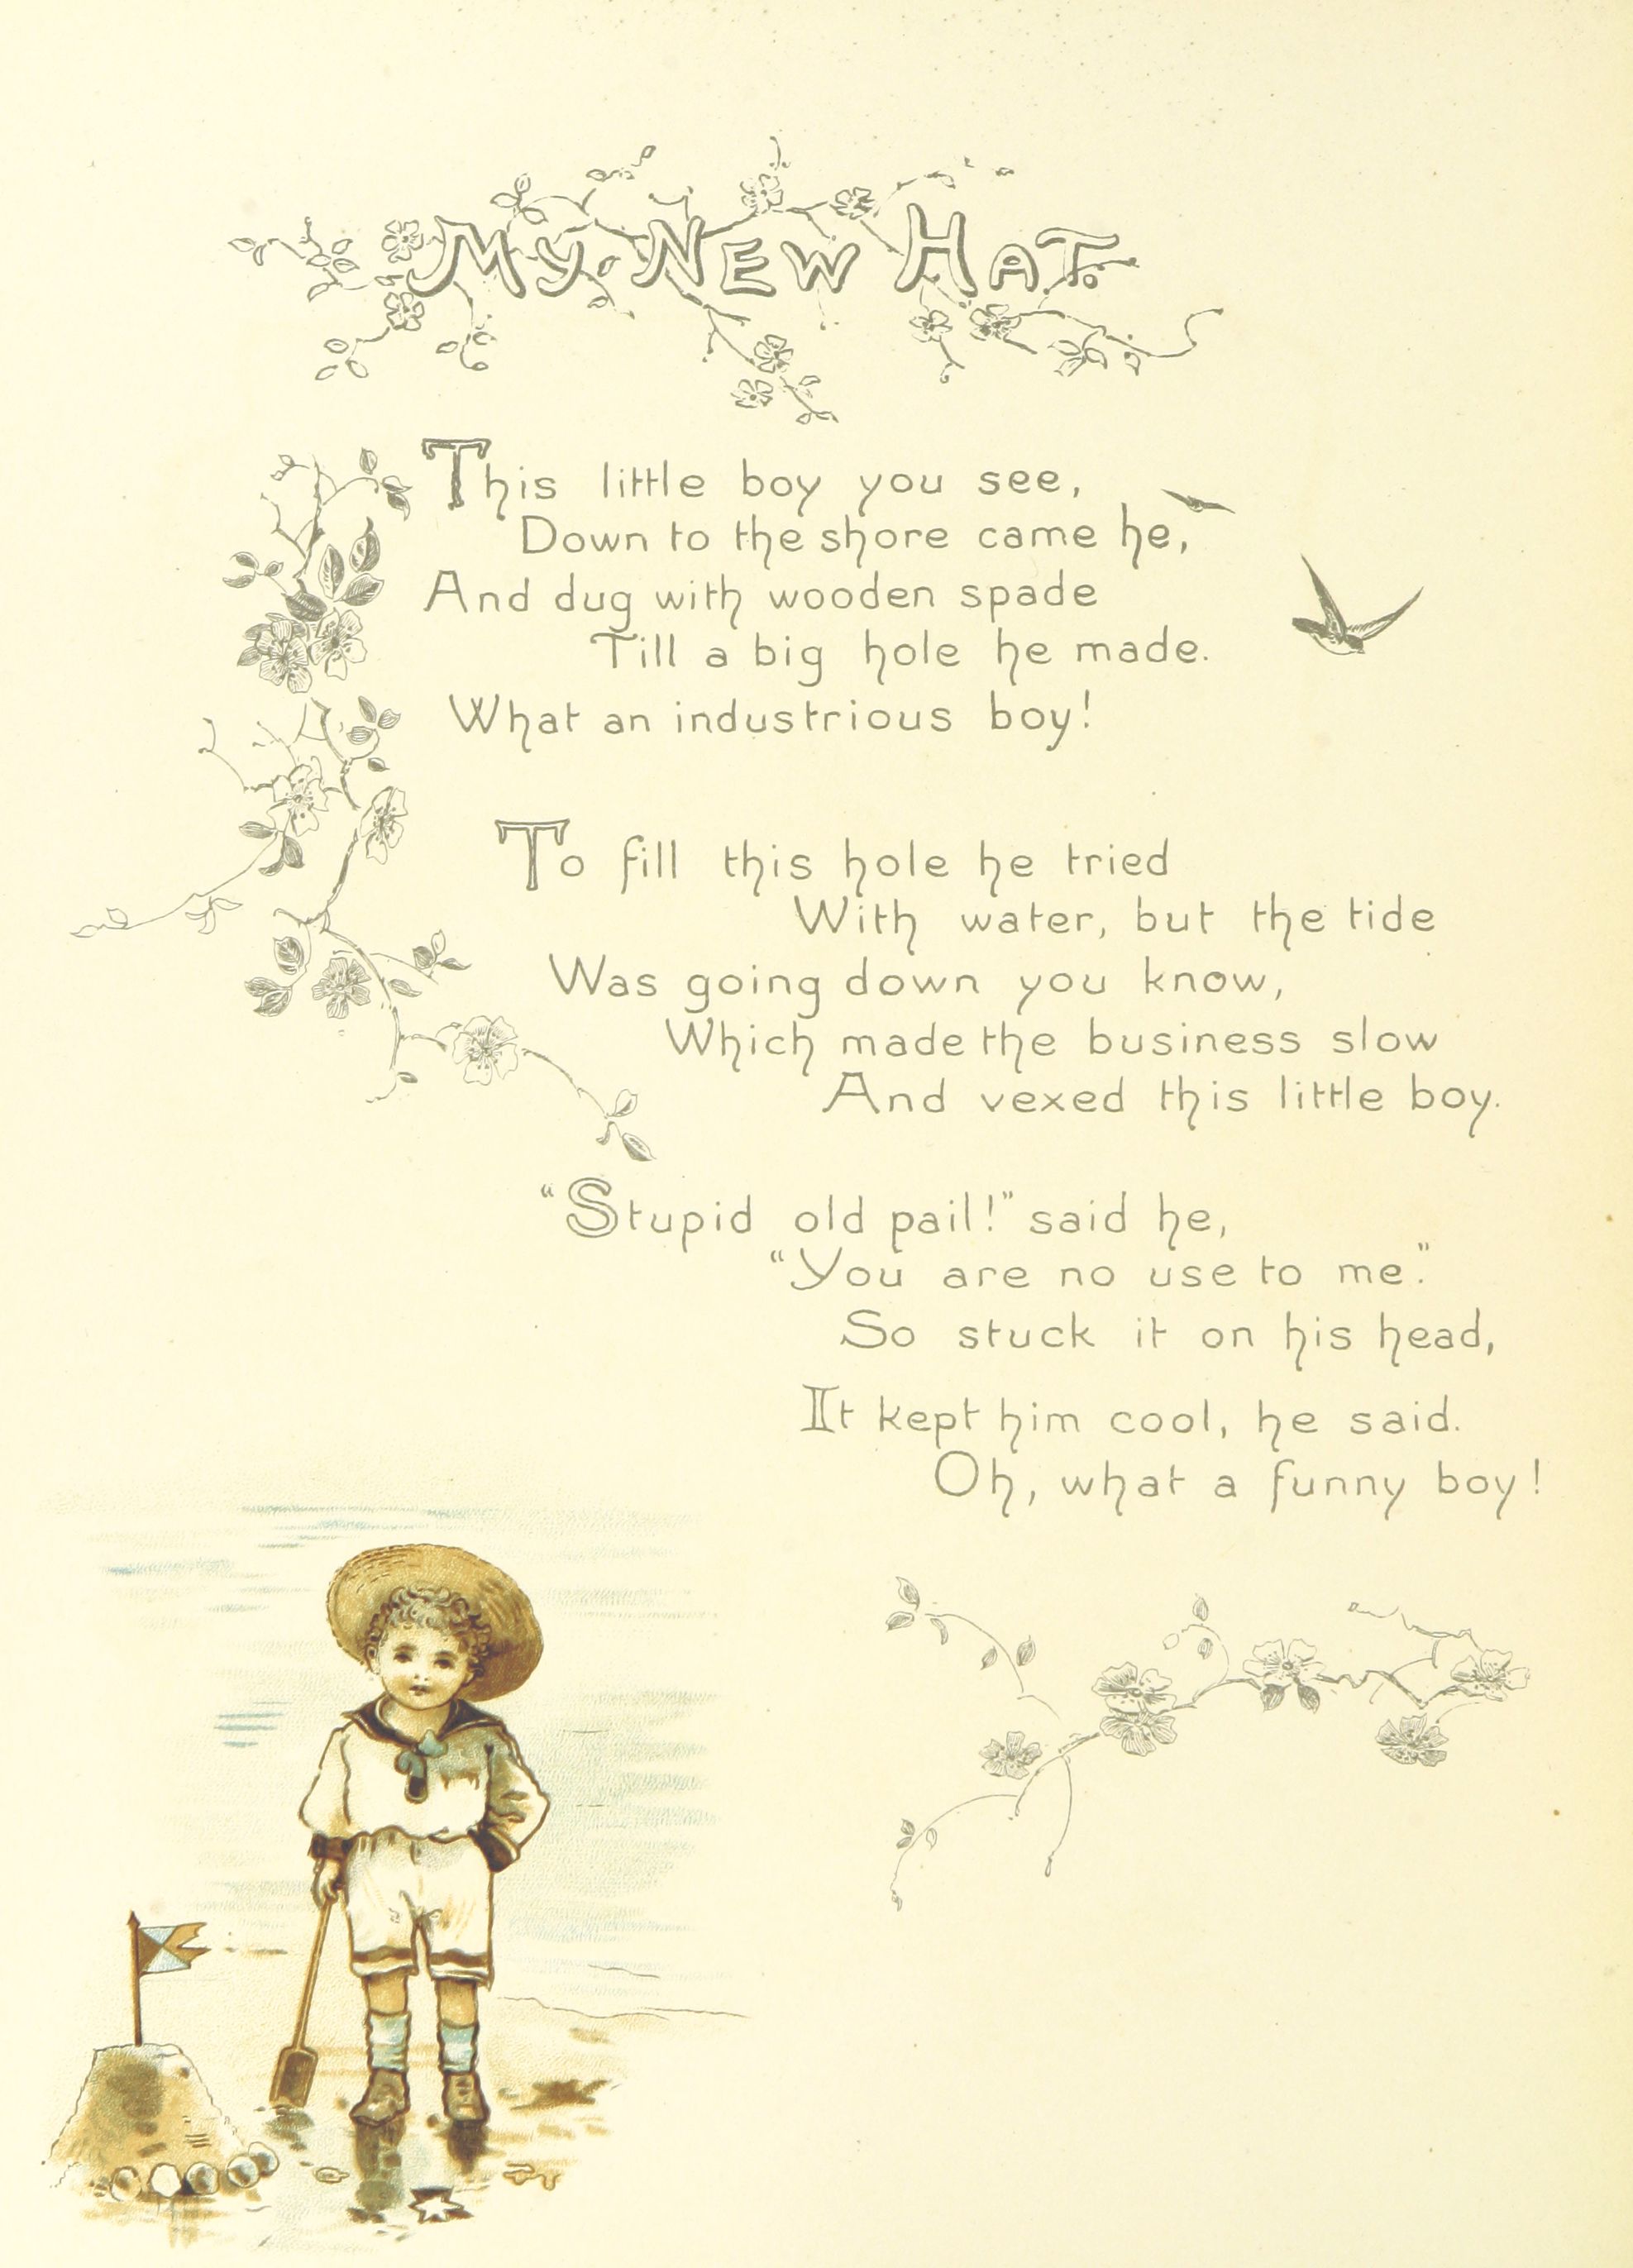 My New Hat.
This little boy you see,
Down to the shore came he,
And dug with wooden spade
Till a big hole he made.
What an industrious boy!
To fill this hole he tried
With water, but the tide
Was going down you know,
Which made the business slow
And vexed this little boy.
"Stupid old pail!" said he,
"You are no use to me."
So stuck it on his head,
It kept him cool, he said.
Oh, what a funny boy!